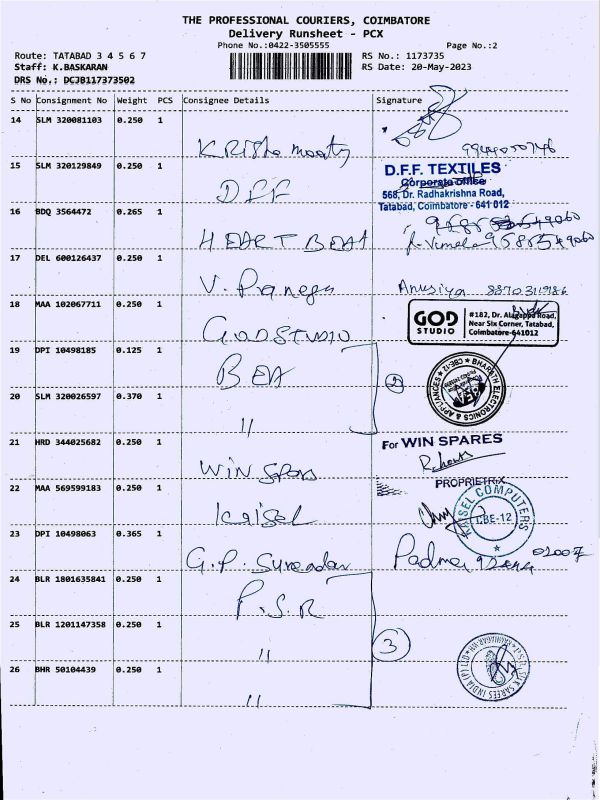 THE PROFESSIONAL COURIERS, COIMBATORE
Delivery Runsheet - PCX
Phone No.:0422-3505555
Page No.:2
Route: TATABAD 3 4 5 6 7
RS No.: 1173735
Staff: K.BASKARAN
RS Date: 20-May-2023
DRS No.: DCJB117373502
S No Consignment No Weight PCS Consignee Details Signature
14 SLM 320081103 0.250 1
15 SLM 320129849 0.250 1
DFF
D.F.F. TEXTILES
Corporate office
568, Dr. Radhakrishna Road,
Tatabad, Coimbatore - 641 012
16 BDQ 3564472 0.265 1
HEART BEAT
17 DEL 600126437 0.250 1
V.
Anusiya
18 MAA 102067711 0.250 1
GOD STUDIO
GOD STUDIO
#182, Dr. Alagappa Road,
Near Six Corner, Tatabad,
Coimbatore-641012
19 DPI 10498185 0.125 1
BEA
2
BHARATH ELECTRONICS & APPLIANCES ★ CBE-12 ★
20 SLM 320026597 0.370 1
"
21 HRD 344025682 0.250 1
WIN
For WIN SPARES
PROPRIETRIX
22 MAA 569599183 0.250 1
Kaisel
KAISEL COMPUTERS
CBE-12
23 DPI 10498063 0.365 1
G.P. Surendar
Padma
24 BLR 1801635841 0.250 1
P.S.R
25 BLR 1201147358 0.250 1
"
3
26 BHR 50104439 0.250 1
"
P.S.R. SILK SAREES INDIA (P) LTD